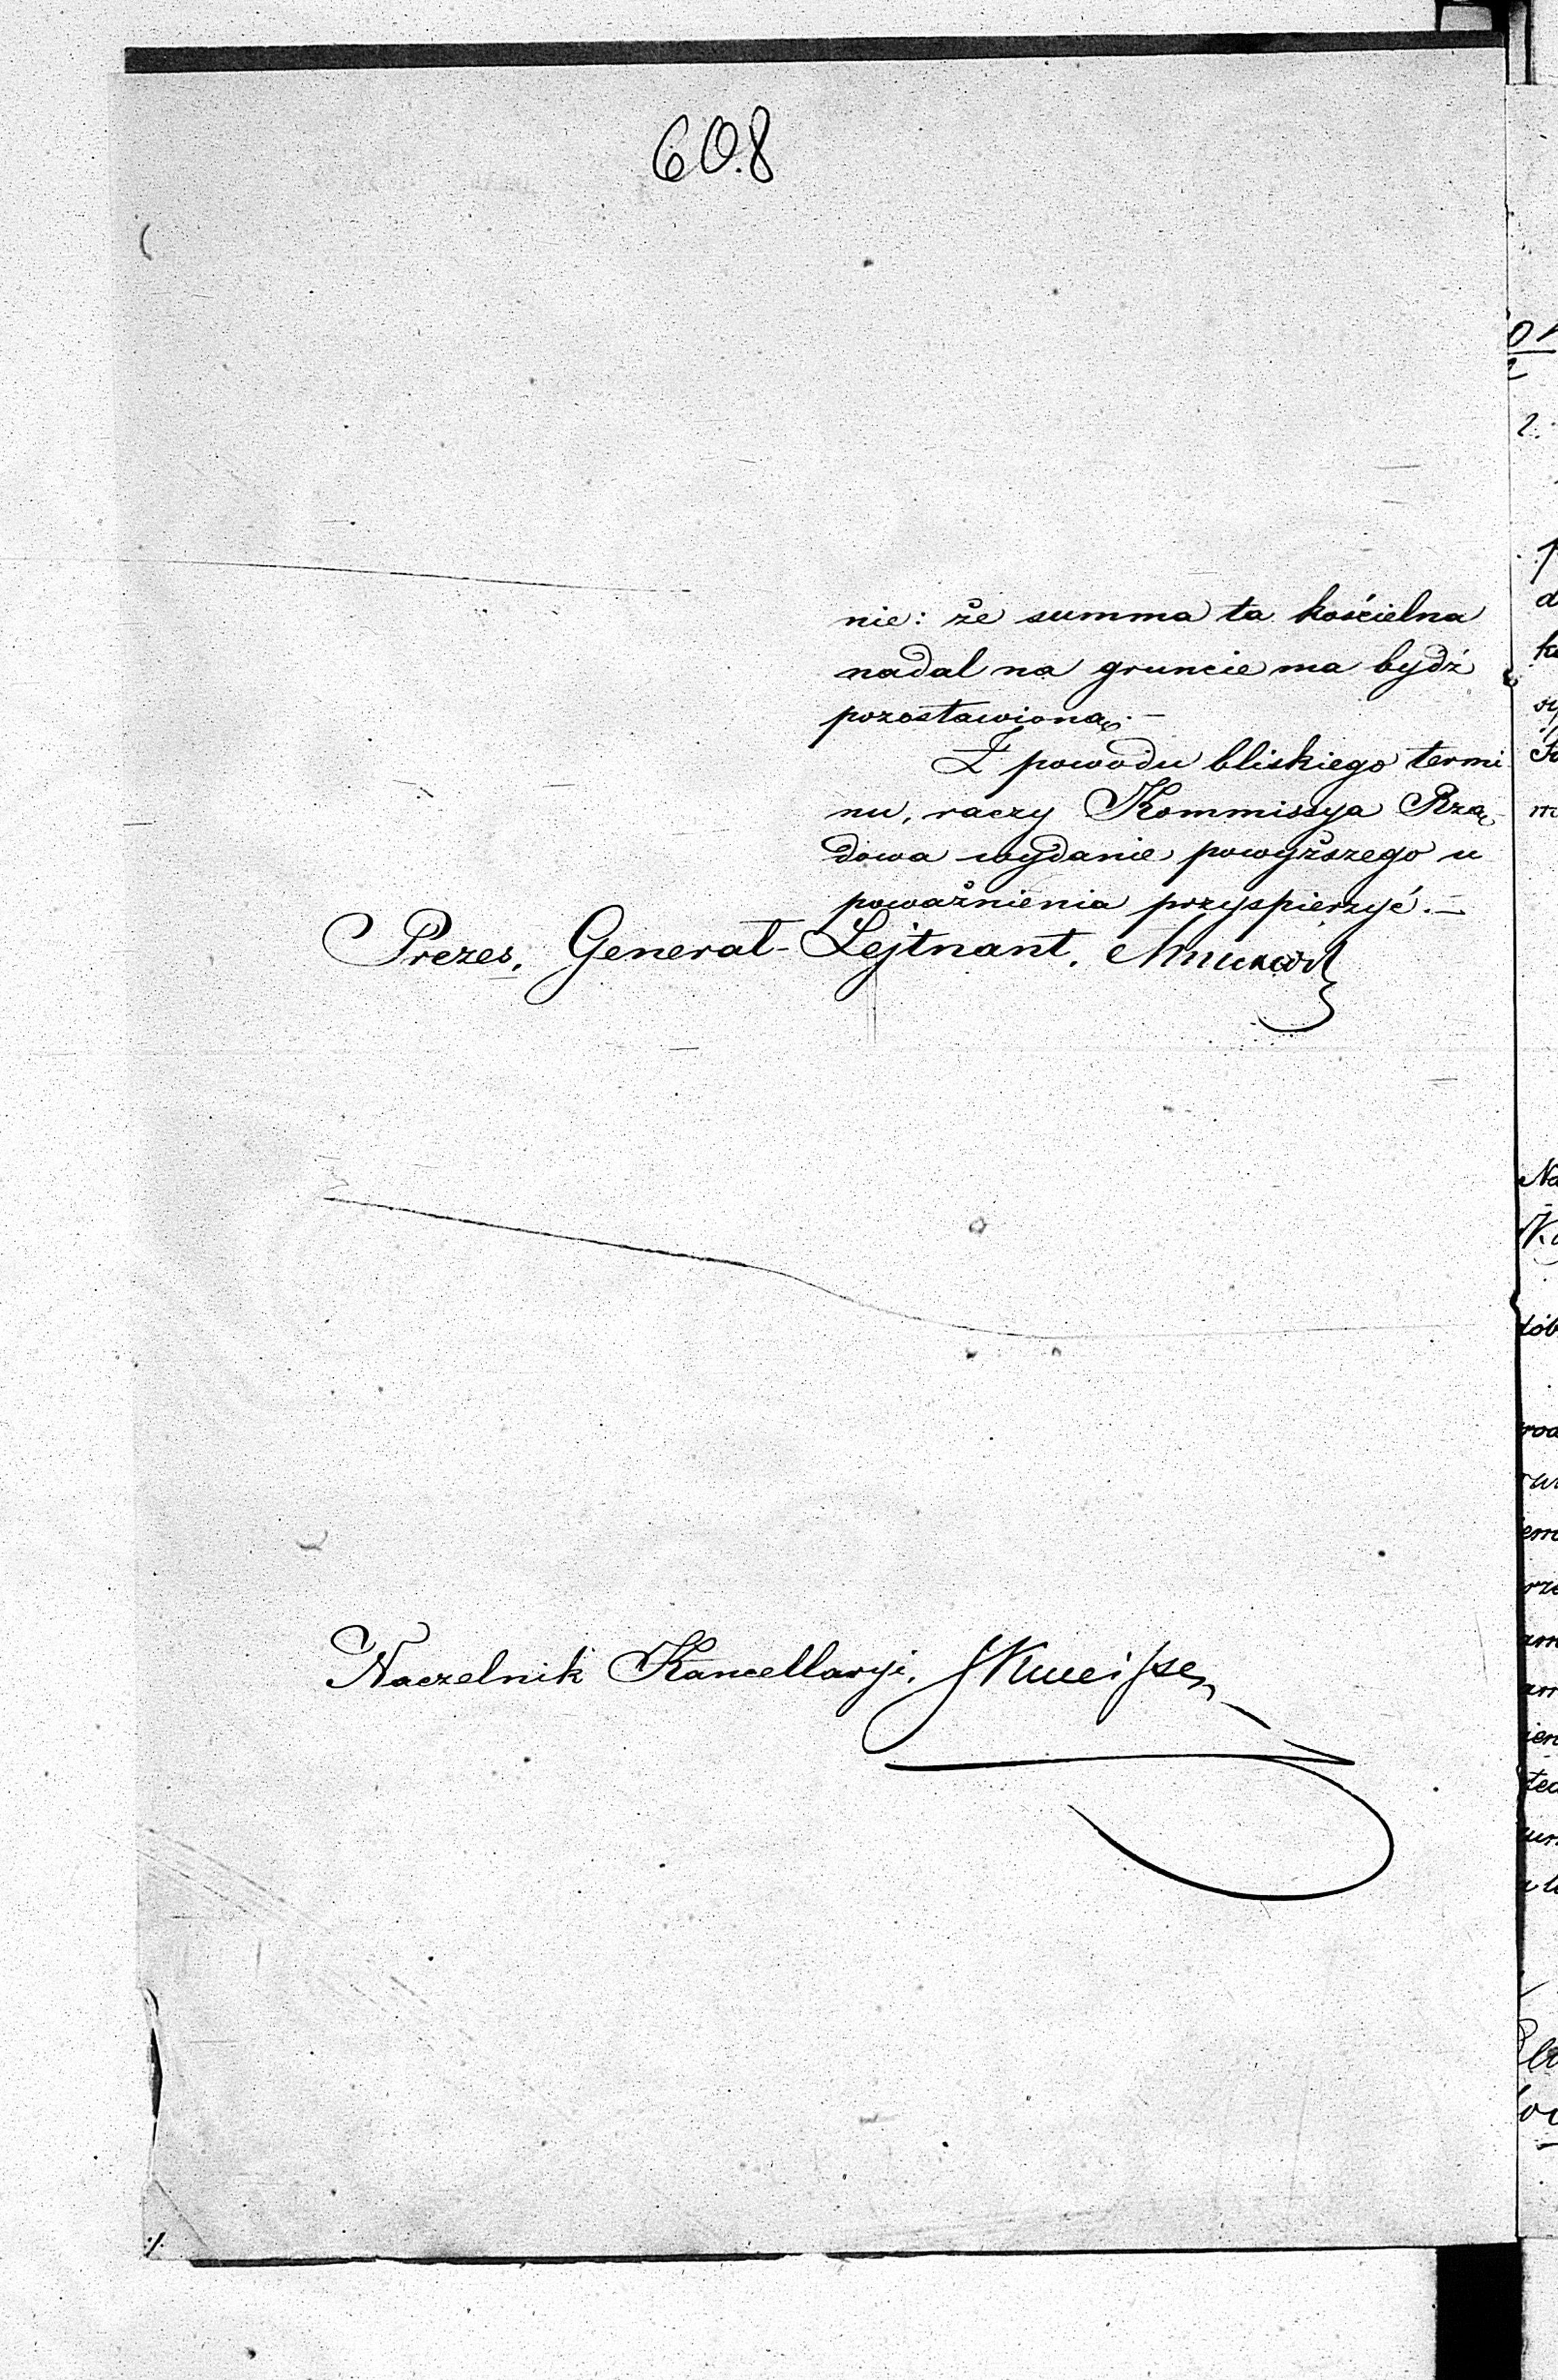 608
nie: że summa ta kościelna
nadal na gruncie ma bydź
pozostawioną. —
Z powodu bliskiego termi
nu, raczy Kommissya Rzą-
dowa wydanie powyższego u
poważnienia przyspierzyć. —
Prezes, Generał-Lejtnant,
Naczelnik Kancellaryi,